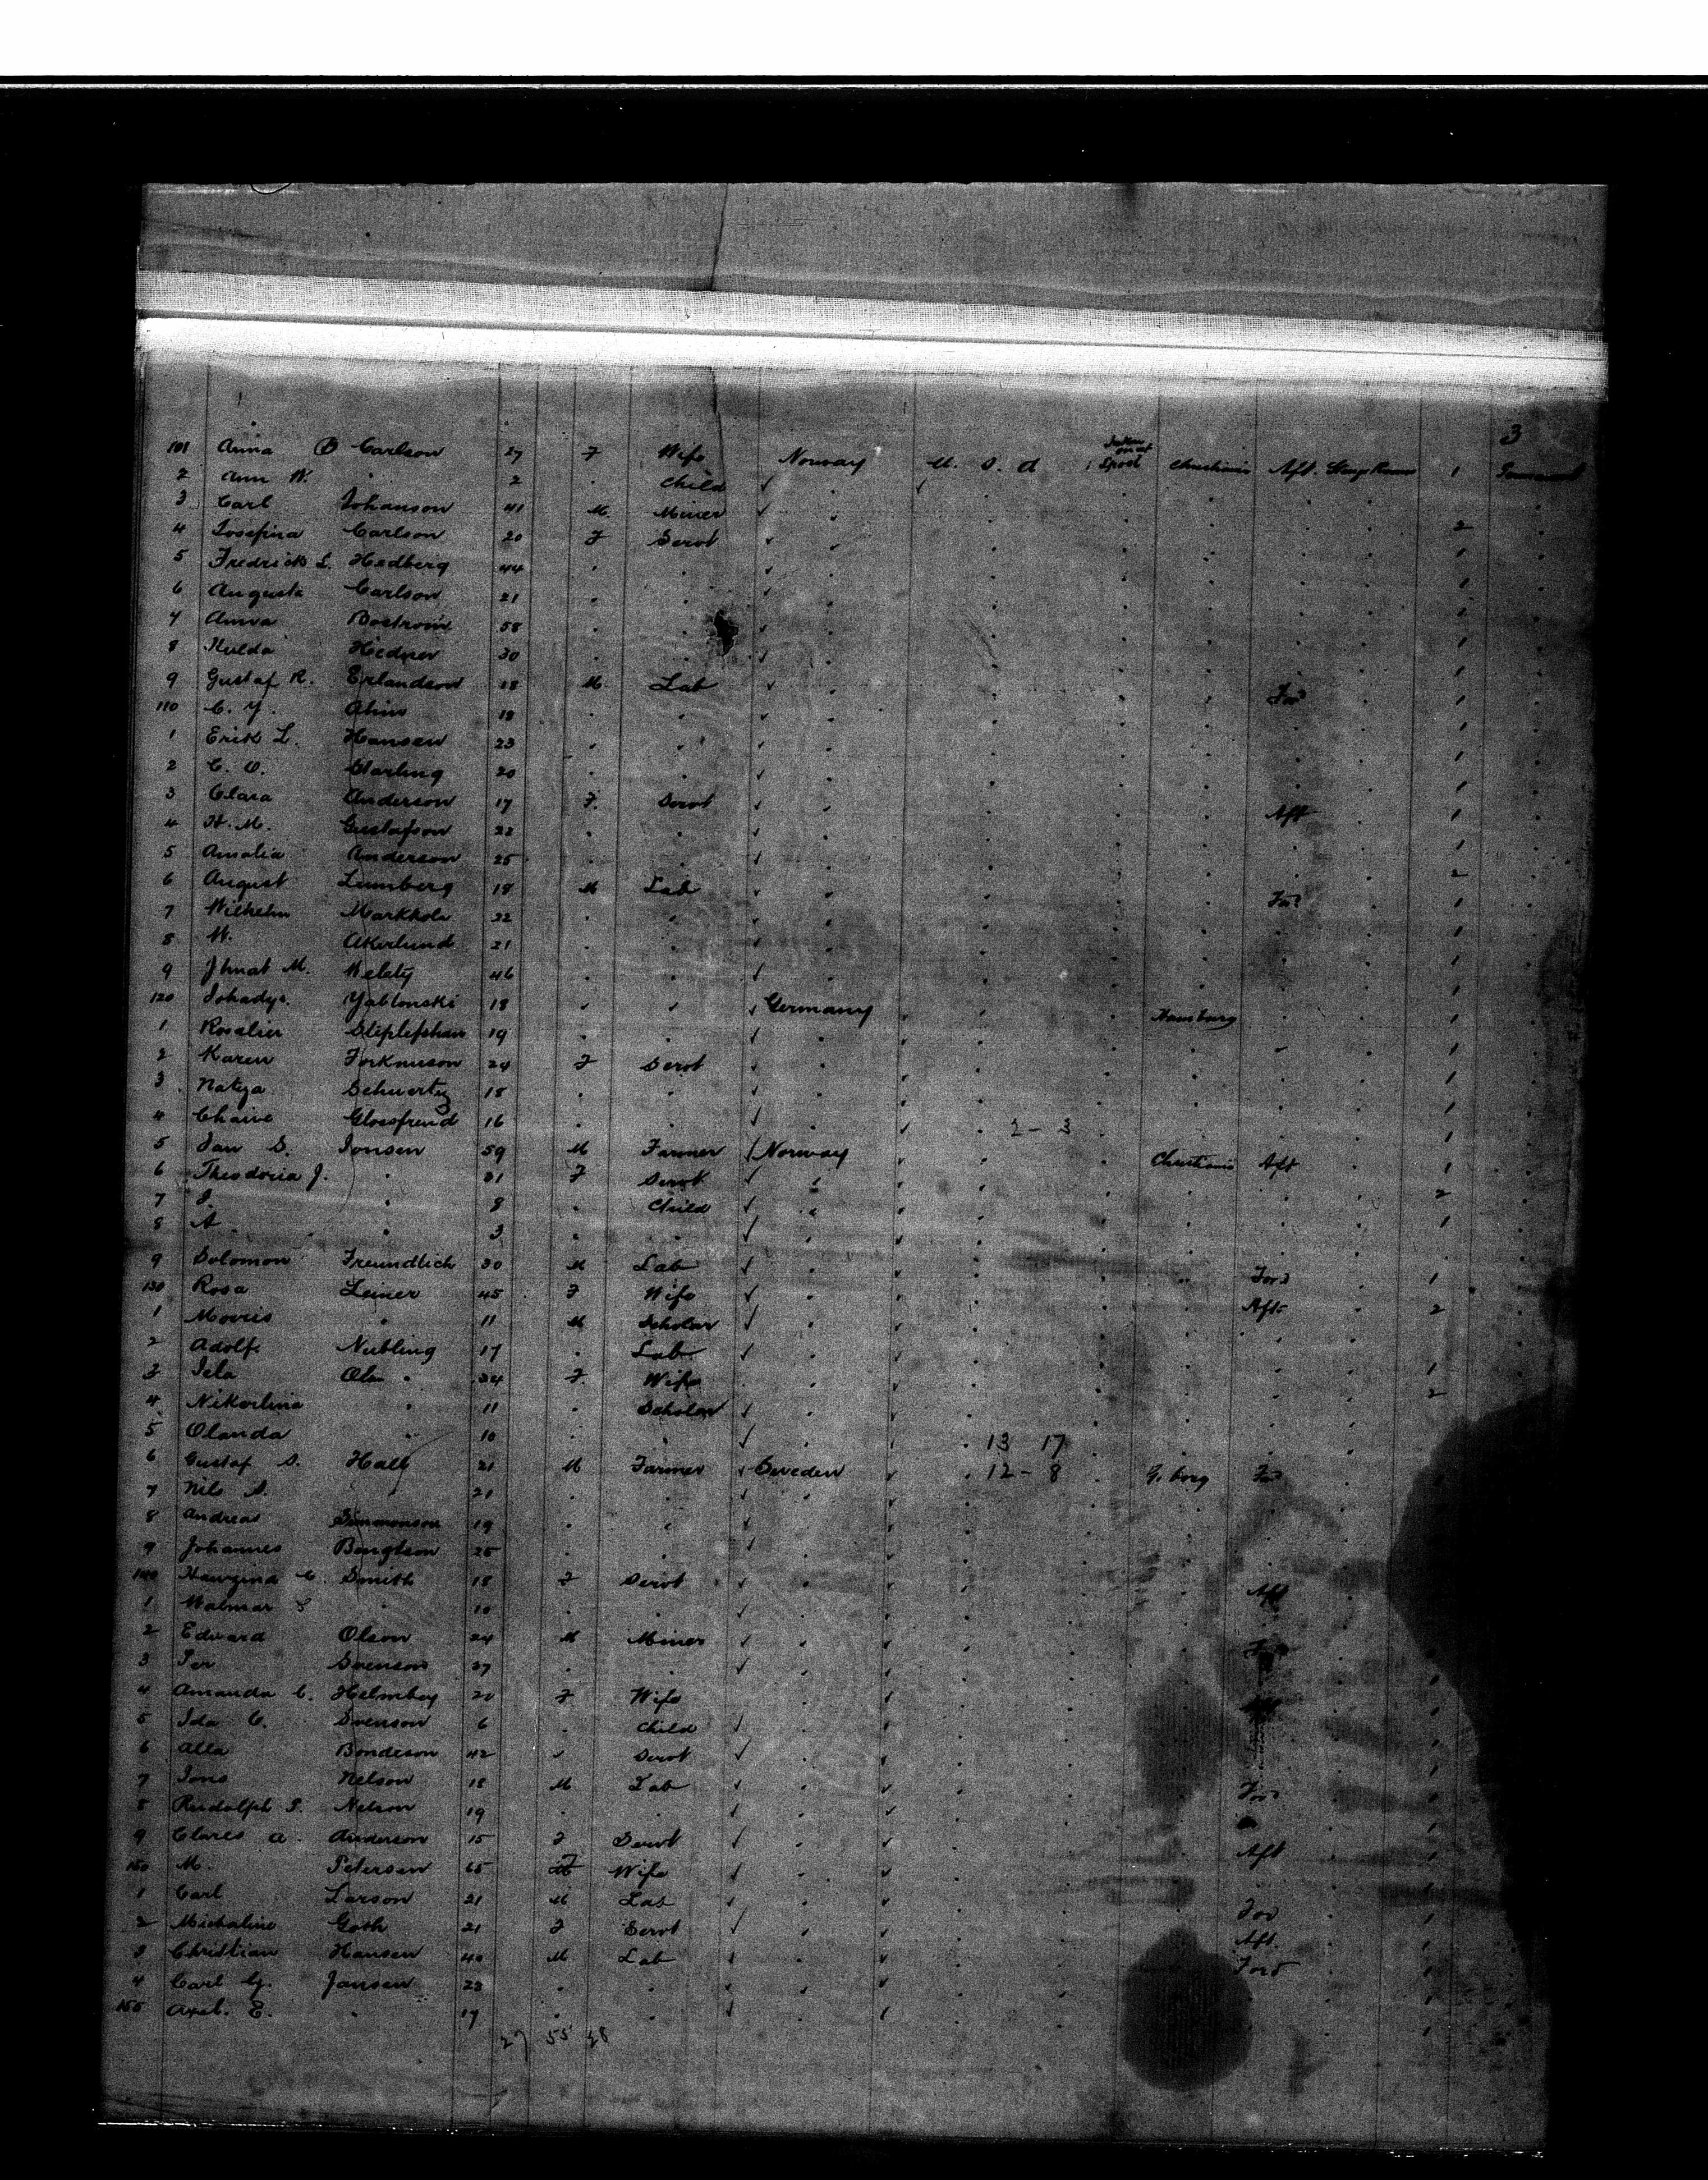 3
101 Anna B Carlson 27 F Wife Norway U. S. A Taken on at Lpool Christiania Aft. Steerage 1 Permanent
2 Ann W. " 2 . Child
3 Carl Johanson 41 M. Miner
4 Josefina Carlson 20 F Servt 2
5 Fredrick L. Hedberg 44 . . 1
6 Augusta Carlson 21 . . 1
7 Anna Bostrom 58 . . 2
8 Hulda Hedner 30 . . 1
9 Gustaf R. Erlandson 18 M. Lab Ford 1
110 C. Y. Alins 19 . . 1
1 Erik L. Hansen 23 . . 1
2 C. O. Starling 20 . . 1
3 Clara Anderson 17 F. Servt Aft 1
4 H. M. Gustafson 22 . . 1
5 Amalia Anderson 25 . . 2
6 August Lumberg 19 M Lab Ford 1
7 Wilhelm 22 . . 1
8 W. Akerlund 21 . . 1
9 M. 46 . . 1
120 Yablonski 18 Germany Hamburg 1
1 Rosalier 19 1
2 Karen 24 F Servt 1
3 Natza Schwertz 18 . . 1
4 Chaive Glossfreud 16 . . 2 - 3 1
5 Jan S. Jonsen 59 M Farmer Norway Christiania Aft 1
6 Theodoria J. " 21 F Servt 2
7 J. " 8 . Child 1
8 A " 3 . .
9 Solomon Freundlich 30 M Lab Ford 1
130 Rosa Leiner 45 F Wife Aft 2
1 Morris " 11 M Scholar
2 Adolf. Nubling 17 . Lab 1
3 Iela Ols " 34 F. Wife 2
4 Nikorlina " 11 . Scholar
5 Olanda " 10 . . 13 17
6 Gustaf S. Hall 21 M Farmer Sweden 12 - 8 G. borg Ford
7 Nils A. " 21 . .
8 Andreas Simmonson 19 . .
9 Johannes Bengtson 25 . .
140 C. Smith 18 F Servt Aft
1 Walmar S " 10 . .
2 Edward Olson 24 M Miner
3 Per Svenson 37 . .
4 Amanda C. 20 F Wife
5 Ida C. Svenson 6 . Child
6 Alla Bondeson 42 Servt
7 Jons Nelson 18 M Lab Ford
8 Rudolph S. Nelson 19 . .
9 Clares A. Anderson 15 F Servt Aft
150 M. Petersen 65 F Wife
1 Carl Larson 21 M Lab For
2 Michaline Goth 21 F Servt Aft. 1
3 Christian Hansen 40 M Lab Ford 1
4 Carl G. Jansen 23 . . 1
155 Axel. E. " 17 . . 1
27 55 28